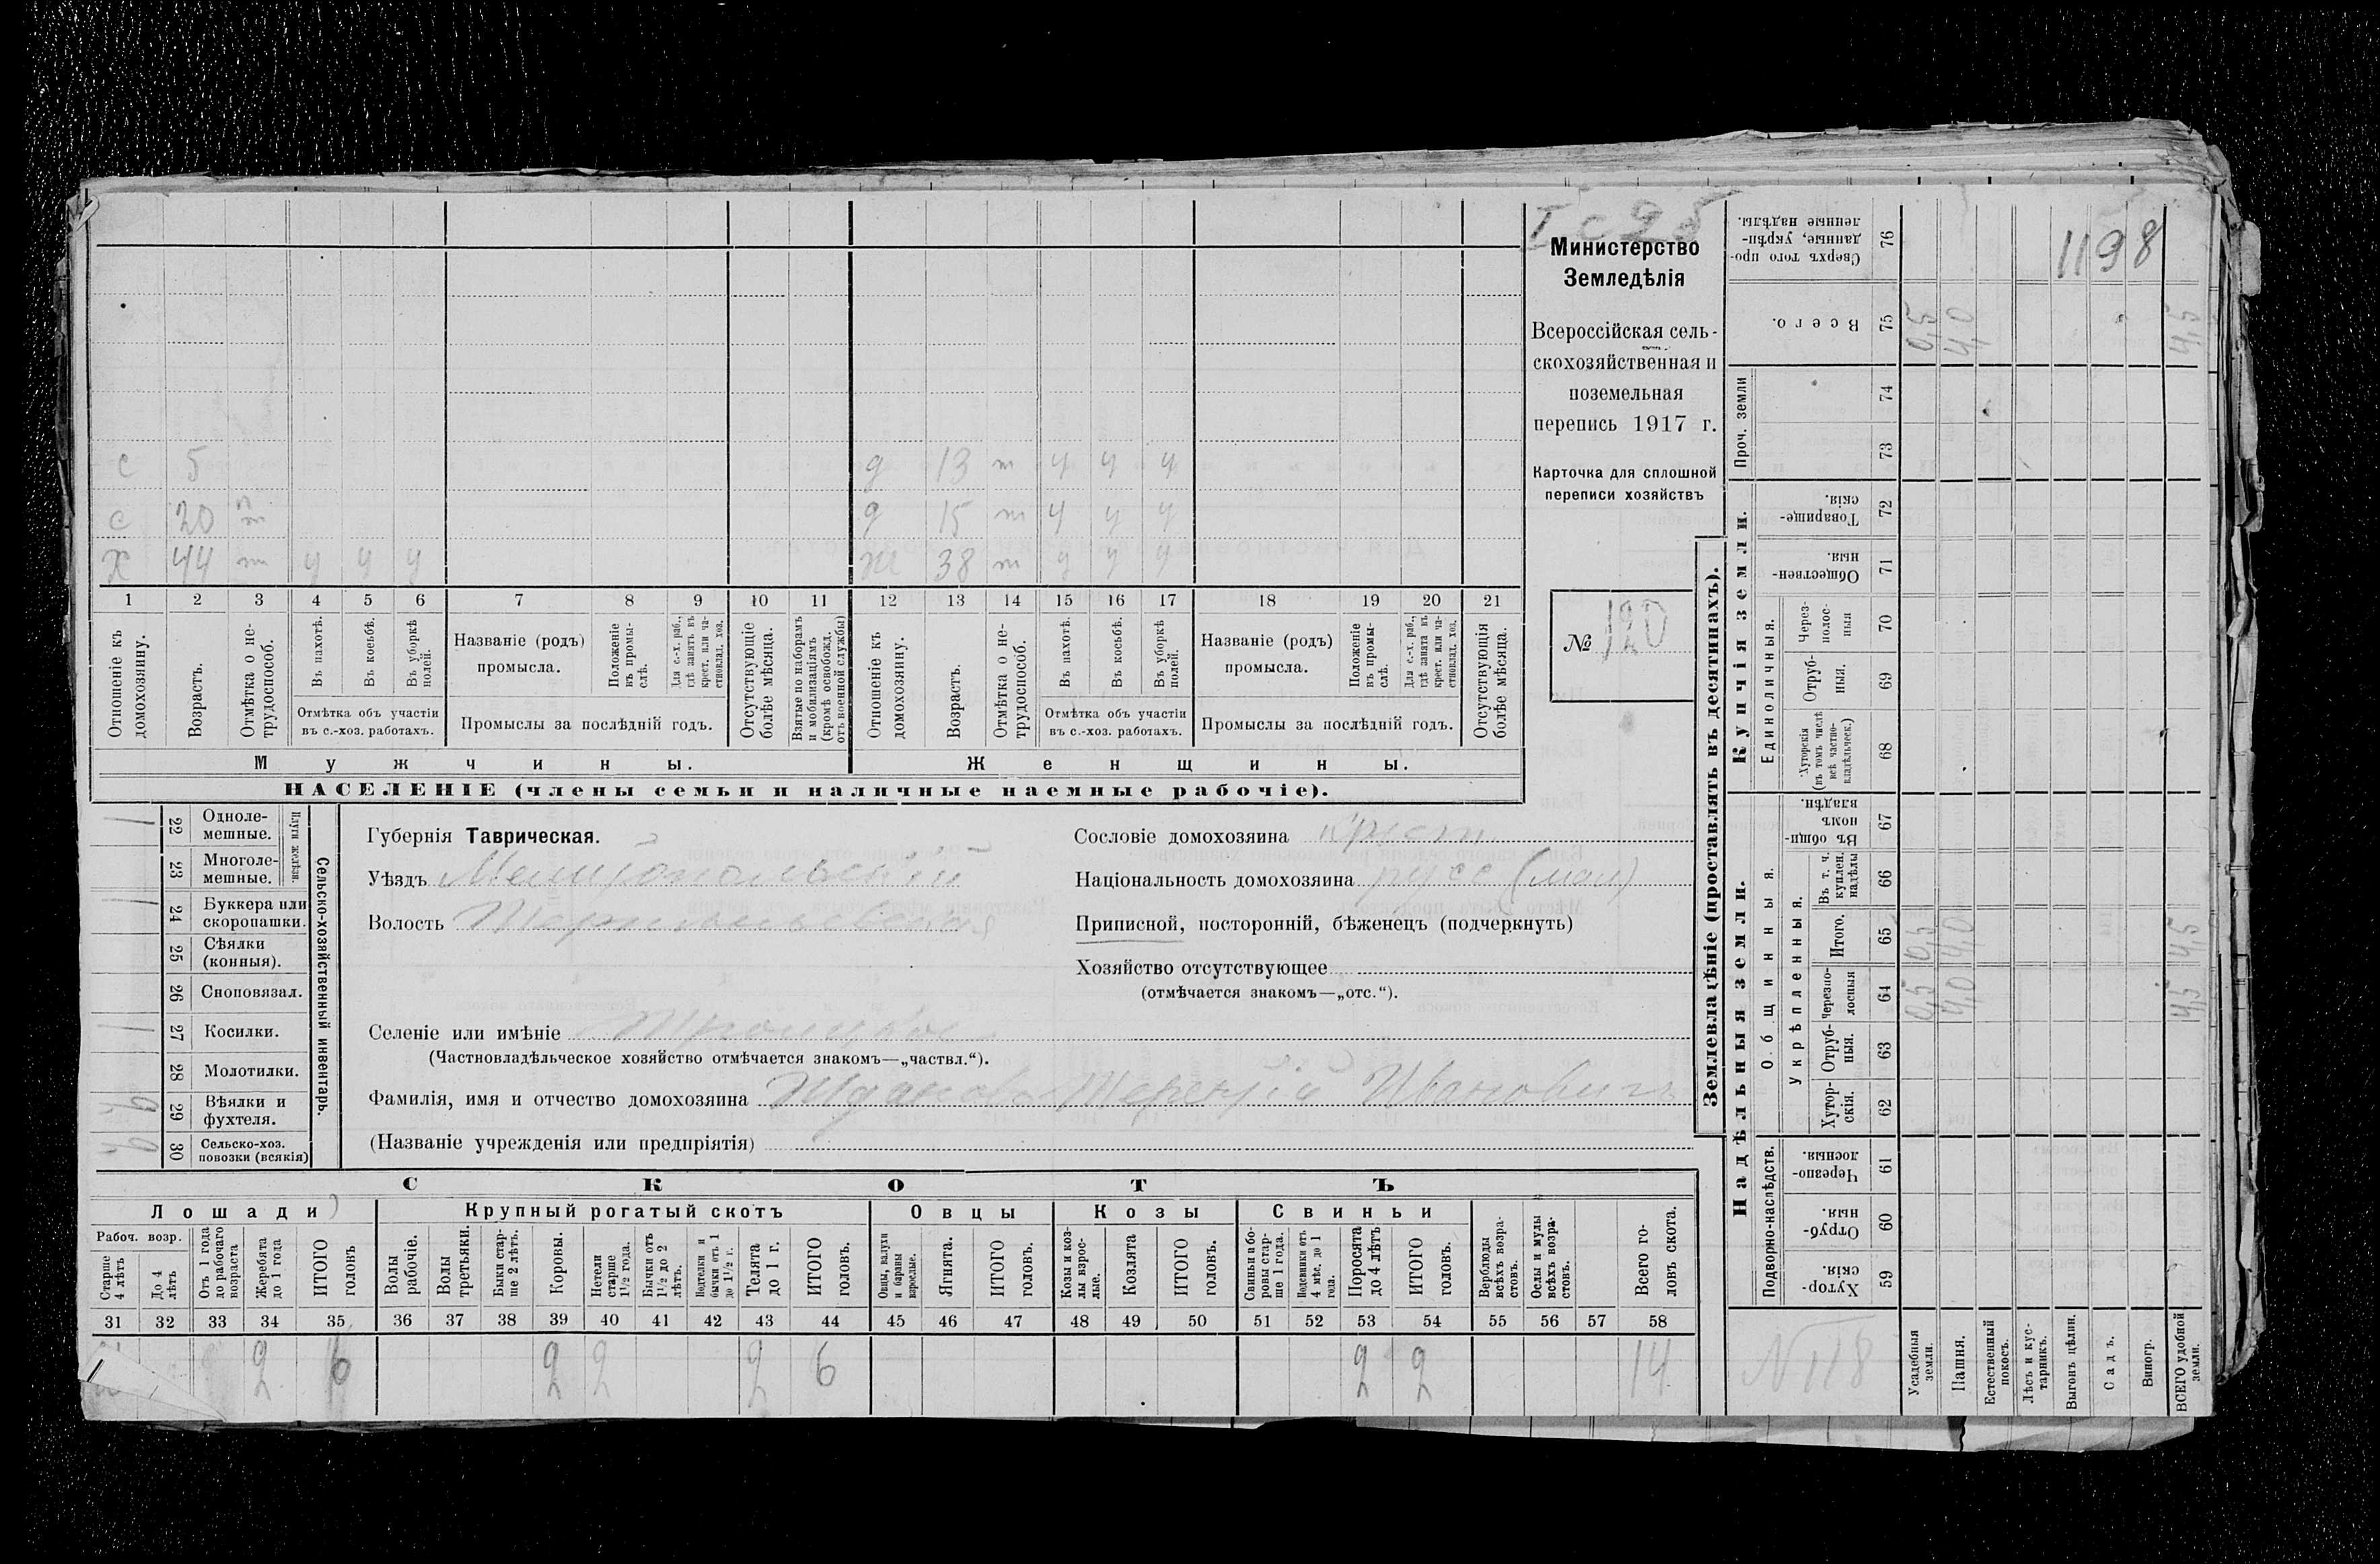 І с 25
Министерство
Земледѣлія
Всероссійская сель-
скохозяйственная и
поземельная
перепись 1917 г.
Карточка для сплошной
переписи хозяйствъ
№ 120
с 5 д 13 т у у у
с 20 д 15 т у у у
х 44 т у у у ж 38 т у у у
1 2 3 4 5 6 7 8 9 10 11 12 13 14 15 16 17 18 19 20 21
Отношеніе къ домохозяину.
Возрастъ.
Отмѣтка о не-трудоспособ.
Въ пахотѣ.
Въ косьбѣ.
Въ уборкѣ полей.
Отмѣтка объ участіи
въ с.-хоз. работахъ.
Названіе (родъ)
промысла.
Положеніе въ промы-слѣ.
Для с.-х. раб., гдѣ занятъ въ крест. или ча-стновлад. хоз.
Промыслы за послѣдній годъ.
Отсутствующіе болѣе мѣсяца.
Взятые по наборамъ и мобилизаціямъ (кромѣ освобожд. отъ военной службы)
Отношеніе къ домохозяину.
Возрастъ.
Отмѣтка о не-трудоспособ.
Въ пахотѣ.
Въ косьбѣ.
Въ уборкѣ полей.
Отмѣтка объ участіи
въ с.-хоз. работахъ.
Названіе (родъ)
промысла.
Положеніе въ промы-слѣ.
Для с.-х. раб., гдѣ занята въ крест. или ча-стновлад. хоз.
Промыслы за послѣдній годъ.
Отсутствующія болѣе мѣсяца.
Мужчины. Женщины.
НАСЕЛЕНІЕ (члены семьи и наличные наемные рабочіе).
Сельско-хозяйственный инвентарь.
Плуги желѣзн.
22 Одноле-мешные. 1
23 Многоле-мешные.
24 Буккера или скоропашки. 1
25 Сѣялки (конныя).
26 Сноповязал.
27 Косилки. 1
28 Молотилки.
29 Вѣялки и фухтеля.
30 Сельско-хоз. повозки (всякія)
Губернія Таврическая.
Уѣздъ Мелитопольскій
Волость
Селеніе или имѣніе Троицкое
(Частновладѣльческое хозяйство отмѣчается знакомъ—„частвл.“).
Фамилія, имя и отчество домохозяина Жданов Терентій Ивановичъ
(Названіе учрежденія или предпріятія)
Сословіе домохозяина крест.
Національность домохозяина русс (мал)
Приписной, посторонній, бѣженецъ (подчеркнуть)
Хозяйство отсутствующее
(отмѣчается знакомъ—„отс.“).
СКОТЪ
Лошади Крупный рогатый скотъ Овцы Козы Свиньи
Рабоч. возр.
Старше 4 лѣтъ
До 4 лѣтъ
Отъ 1 года до рабочаго возраста
Жеребята до 1 года
ИТОГО головъ
Волы рабочіе.
Волы третьяки.
Быки стар-ше 2 лѣтъ.
Коровы.
Нетели старше 1½ года.
Бычки отъ 1½ до 2 лѣтъ.
Нетелки и бычки отъ 1 до 1½ г.
Телята до 1 г.
ИТОГО головъ.
Овцы, валухи и бараны взрослые.
Ягнята.
ИТОГО головъ.
Козы и коз-лы взрос-лые.
Козлята
ИТОГО головъ.
Свиньи и бо-ровы стар-ше 1 года.
Подсвинки отъ 4 мѣс. до 1 года.
Поросята до 4 лѣтъ
ИТОГО головъ.
Верблюды всѣхъ возра-стовъ.
Ослы и мулы всѣхъ возра-стовъ.
Всего го-ловъ скота.
31 32 33 34 35 36 37 38 39 40 41 42 43 44 45 46 47 48 49 50 51 52 53 54 55 56 57 58
2 6 2 2 2 6 2 2 14
Землевладѣніе (проставлять въ десятинахъ).
Надѣльныя земли. Купчія земли. Проч. земли
Подворно-наслѣдств.
Общинныя.
Укрѣпленныя.
Единоличныя.
59 Хутор-скія.
60 Отруб-ныя.
61 Черезпо-лосныя.
62 Хутор-скія.
63 Отруб-ныя.
64 Черезпо-лосныя 0,5 4,0 4,5
65 Итого. 0,5 4,0 4,5
66 Въ т. ч. куплен. надѣлы
67 Въ общи-номъ владѣн.
68 Хуторскія (въ томъ числѣ всѣ частно-владѣльческ.)
69 Отруб-ныя.
70 Через-полос-ныя
71 Обществен-ныя.
72 Товарище-скія.
73
74
75 Всего. 0,5 4,0 4,5
76 Сверхъ того про-данные, укрѣп-ленные надѣлы.
1198
N 118
Усадебныя земли.
Пашня.
Естественный покосъ.
Лѣсъ и кус-тарникъ.
Выгонъ цѣлин.
Садъ.
Виногр.
ВСЕГО удобной земли.